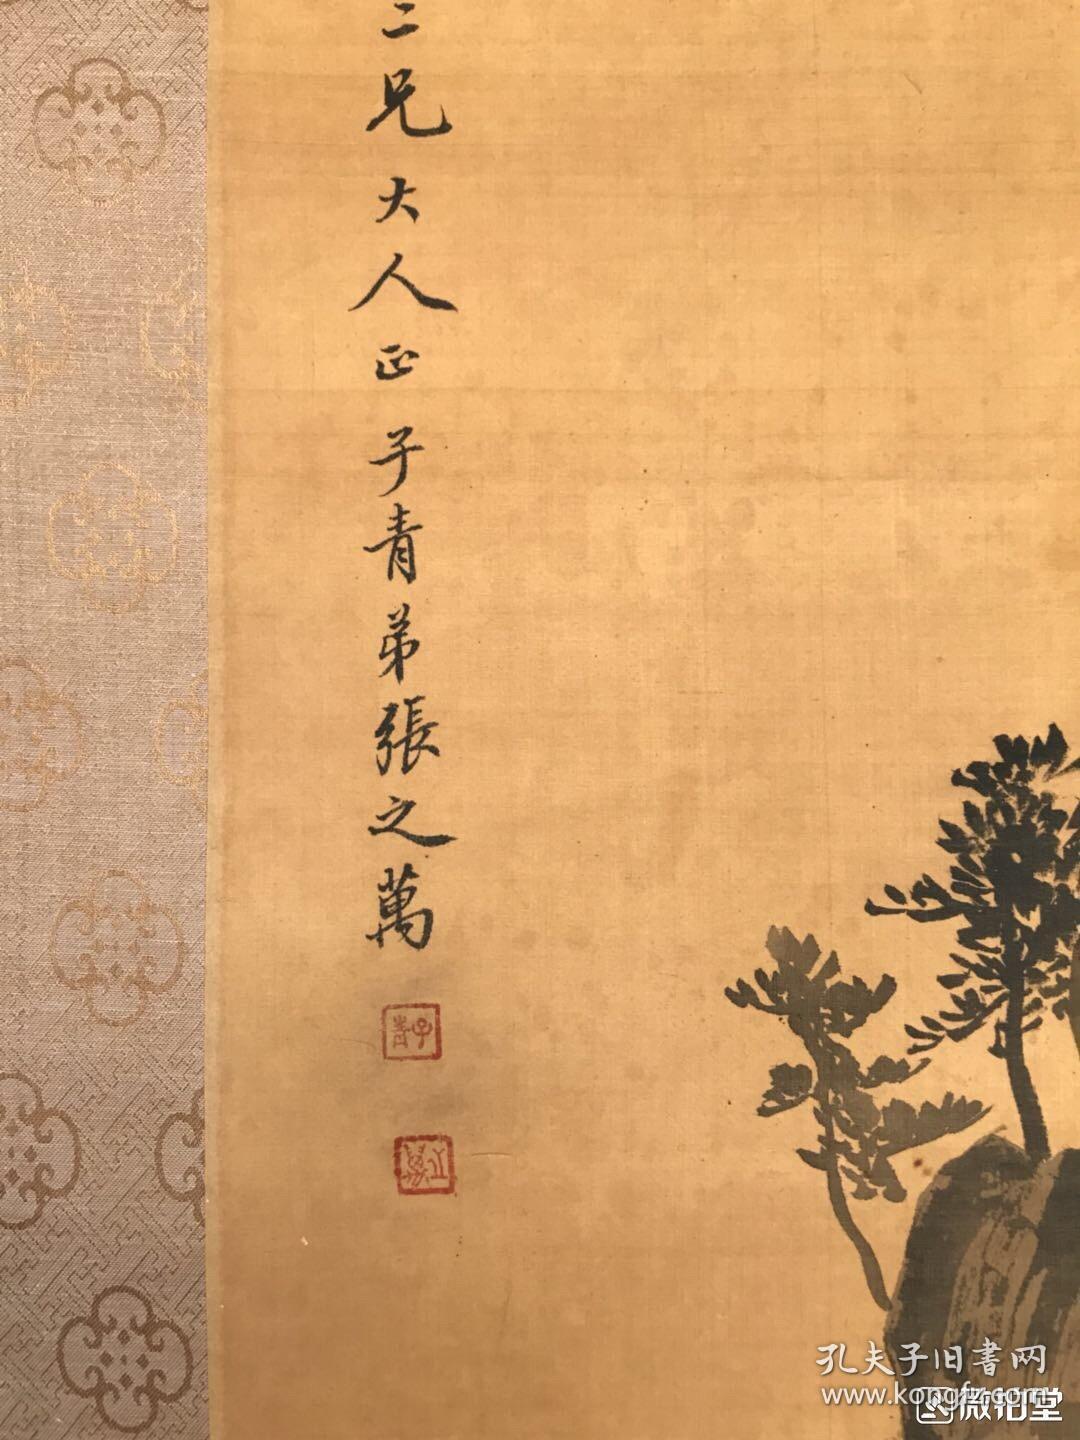 二兄大人正子青弟張之萬
子青
之萬
孔夫子旧書网
www.kongfz.com
微拍堂